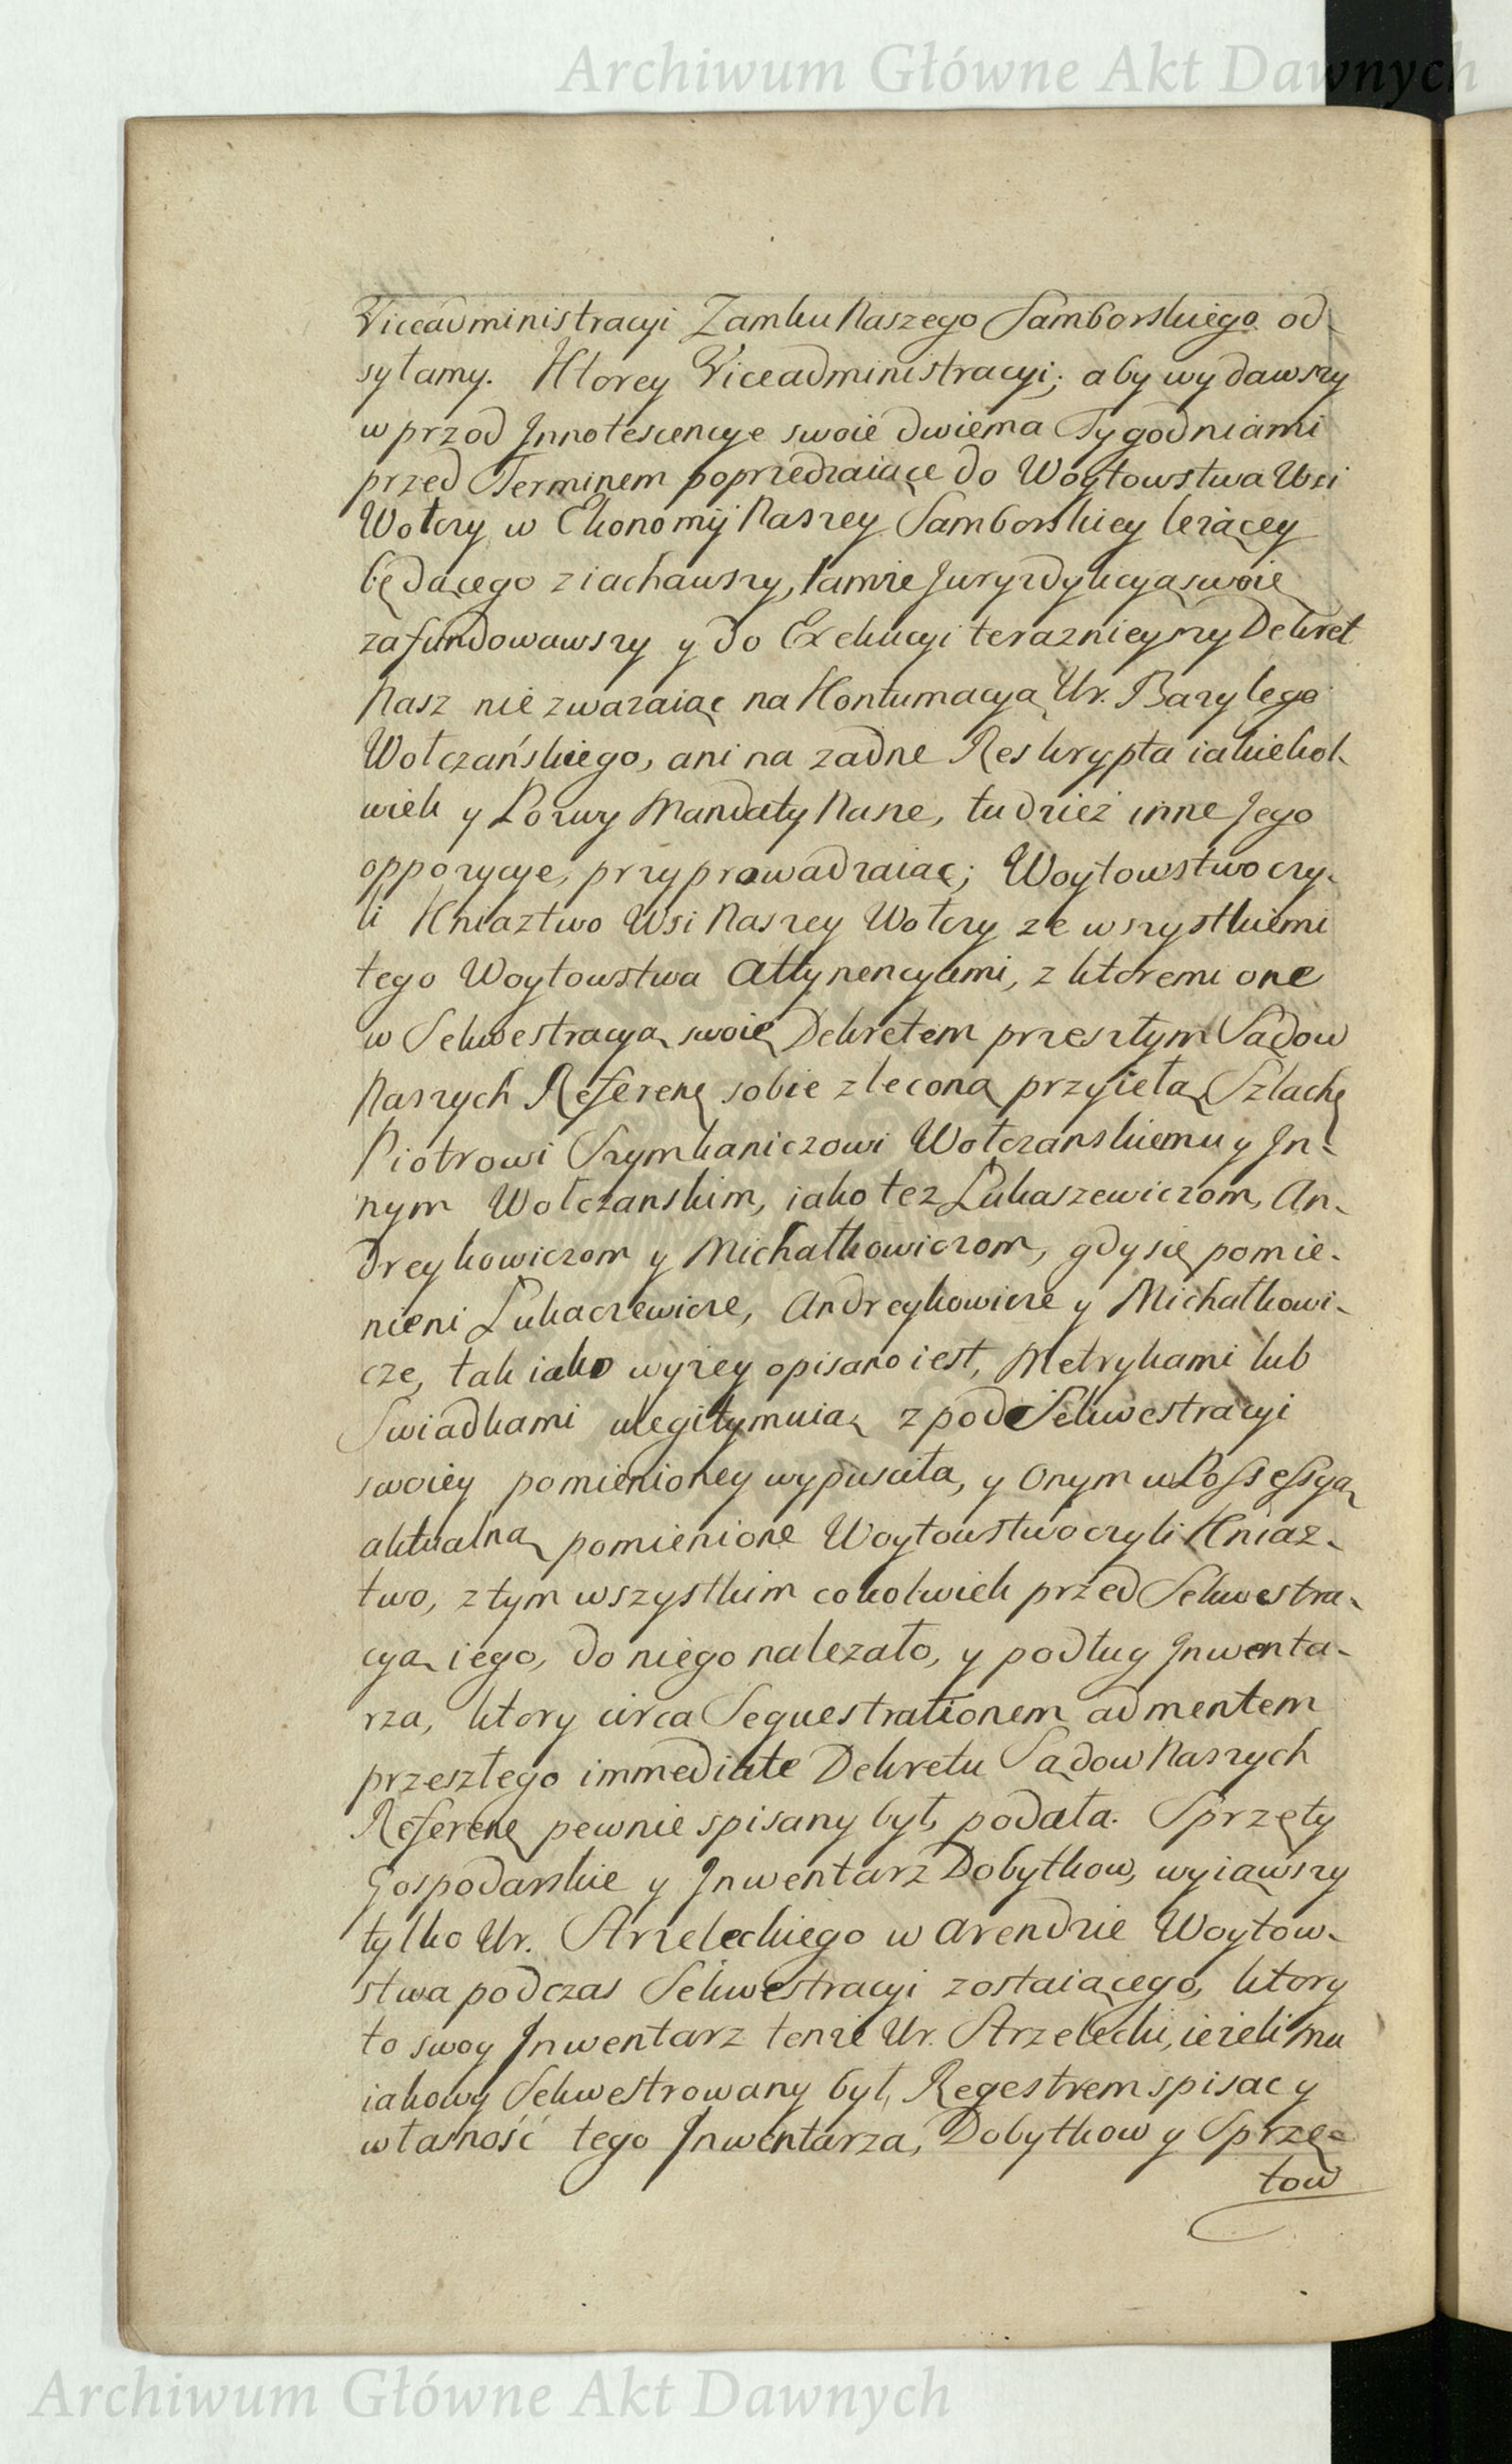 Archiwum Główne Akt Dawnych
Viceadministracyi Zamku Naszego Samborskiego od-
syłamy. Ktorey Viceadministracyi; aby wydawszy
w przod Innotescencye swoie dwiema Tygodniami
przed Terminem poprzedzaiące do Woytowstwa Wsi
Wołczy w Ekonomij Naszey Samborskiey leżącey
będącego ziachawszy, tamże Juryzdykcyą swoię
zafundowawszy y do Exekucyi teraznieyszy Dekret
Nasz nie zwazaiąc na Kontumacyą Ur. Bazylego
Wołczańskiego, ani na zadne Reskrypta iakiekol-
wiek y Pozwy Mandaty Nasze, tudzież inne Jego
oppozycye, przyprowadzaiąc; Woytowstwo czy-
li Kniaztwo Wsi Naszey Wołczy ze wszystkiemi
tego Woytowstwa Attynencyami, z ktoremi one
w Sekwestracyą swoię Dekretem przeszłym Sądow
Naszych Referenẹ sobie zleconą przyięła, Szlachẹ
Piotrowi Szymkaniczowi Wołczanskiemu y In-
nym Wołczanskim, iako tez Łukaszewiczom, An-
dreykowiczom y Michałkowiczom, gdy się pomie-
nieni Łukaczewicze, Andreykowicze y Michałkowi-
cze, tak iako wyżey opisano iest, Metrykami lub
Swiadkami ulegitymuią z pod Sekwestracyi
swoiey pomienioney wypuściła, y onym w Possessyą
aktualną pomienione Woytowstwo czyli Kniaz-
two, z tym wszystkim cokolwiek przed Sekwestra-
cyą iego, do niego nalezało, y podług Inwenta-
rza, ktory circa Sequestrationem ad mentem
przeszłego immediate Dekretu Sądow Naszych
Referenẹ pewnie spisany był, podała. Sprzęty
Gospodarskie y Inwentarz Dobytkow, wyiąwszy
tylko Ur. Strzeleckiego w Arendzie Woytow-
stwa podczas Sekwestracyi zostaiącego, ktory
to swoy Inwentarz tenże Ur. Strzelecki, ieżeli mu
iakowy Sekwestrowany był, Regestrem spisac y
własność tego Inwentarza, Dobytkow y Sprzę-
tow
Archiwum Główne Akt Dawnych